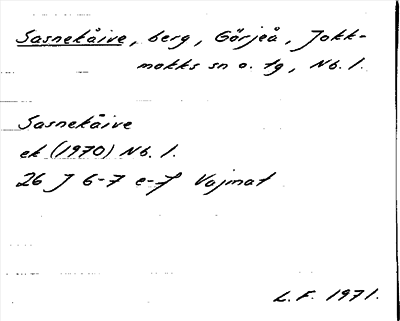 Sasnekåive, berg, Görjeå, Jokk-
mokks sn o. tg, Nb. l.
Sasnekåive
ek (1970) Nb. l.
26 J 6-7 e-f Vajmat
L. F. 1971.